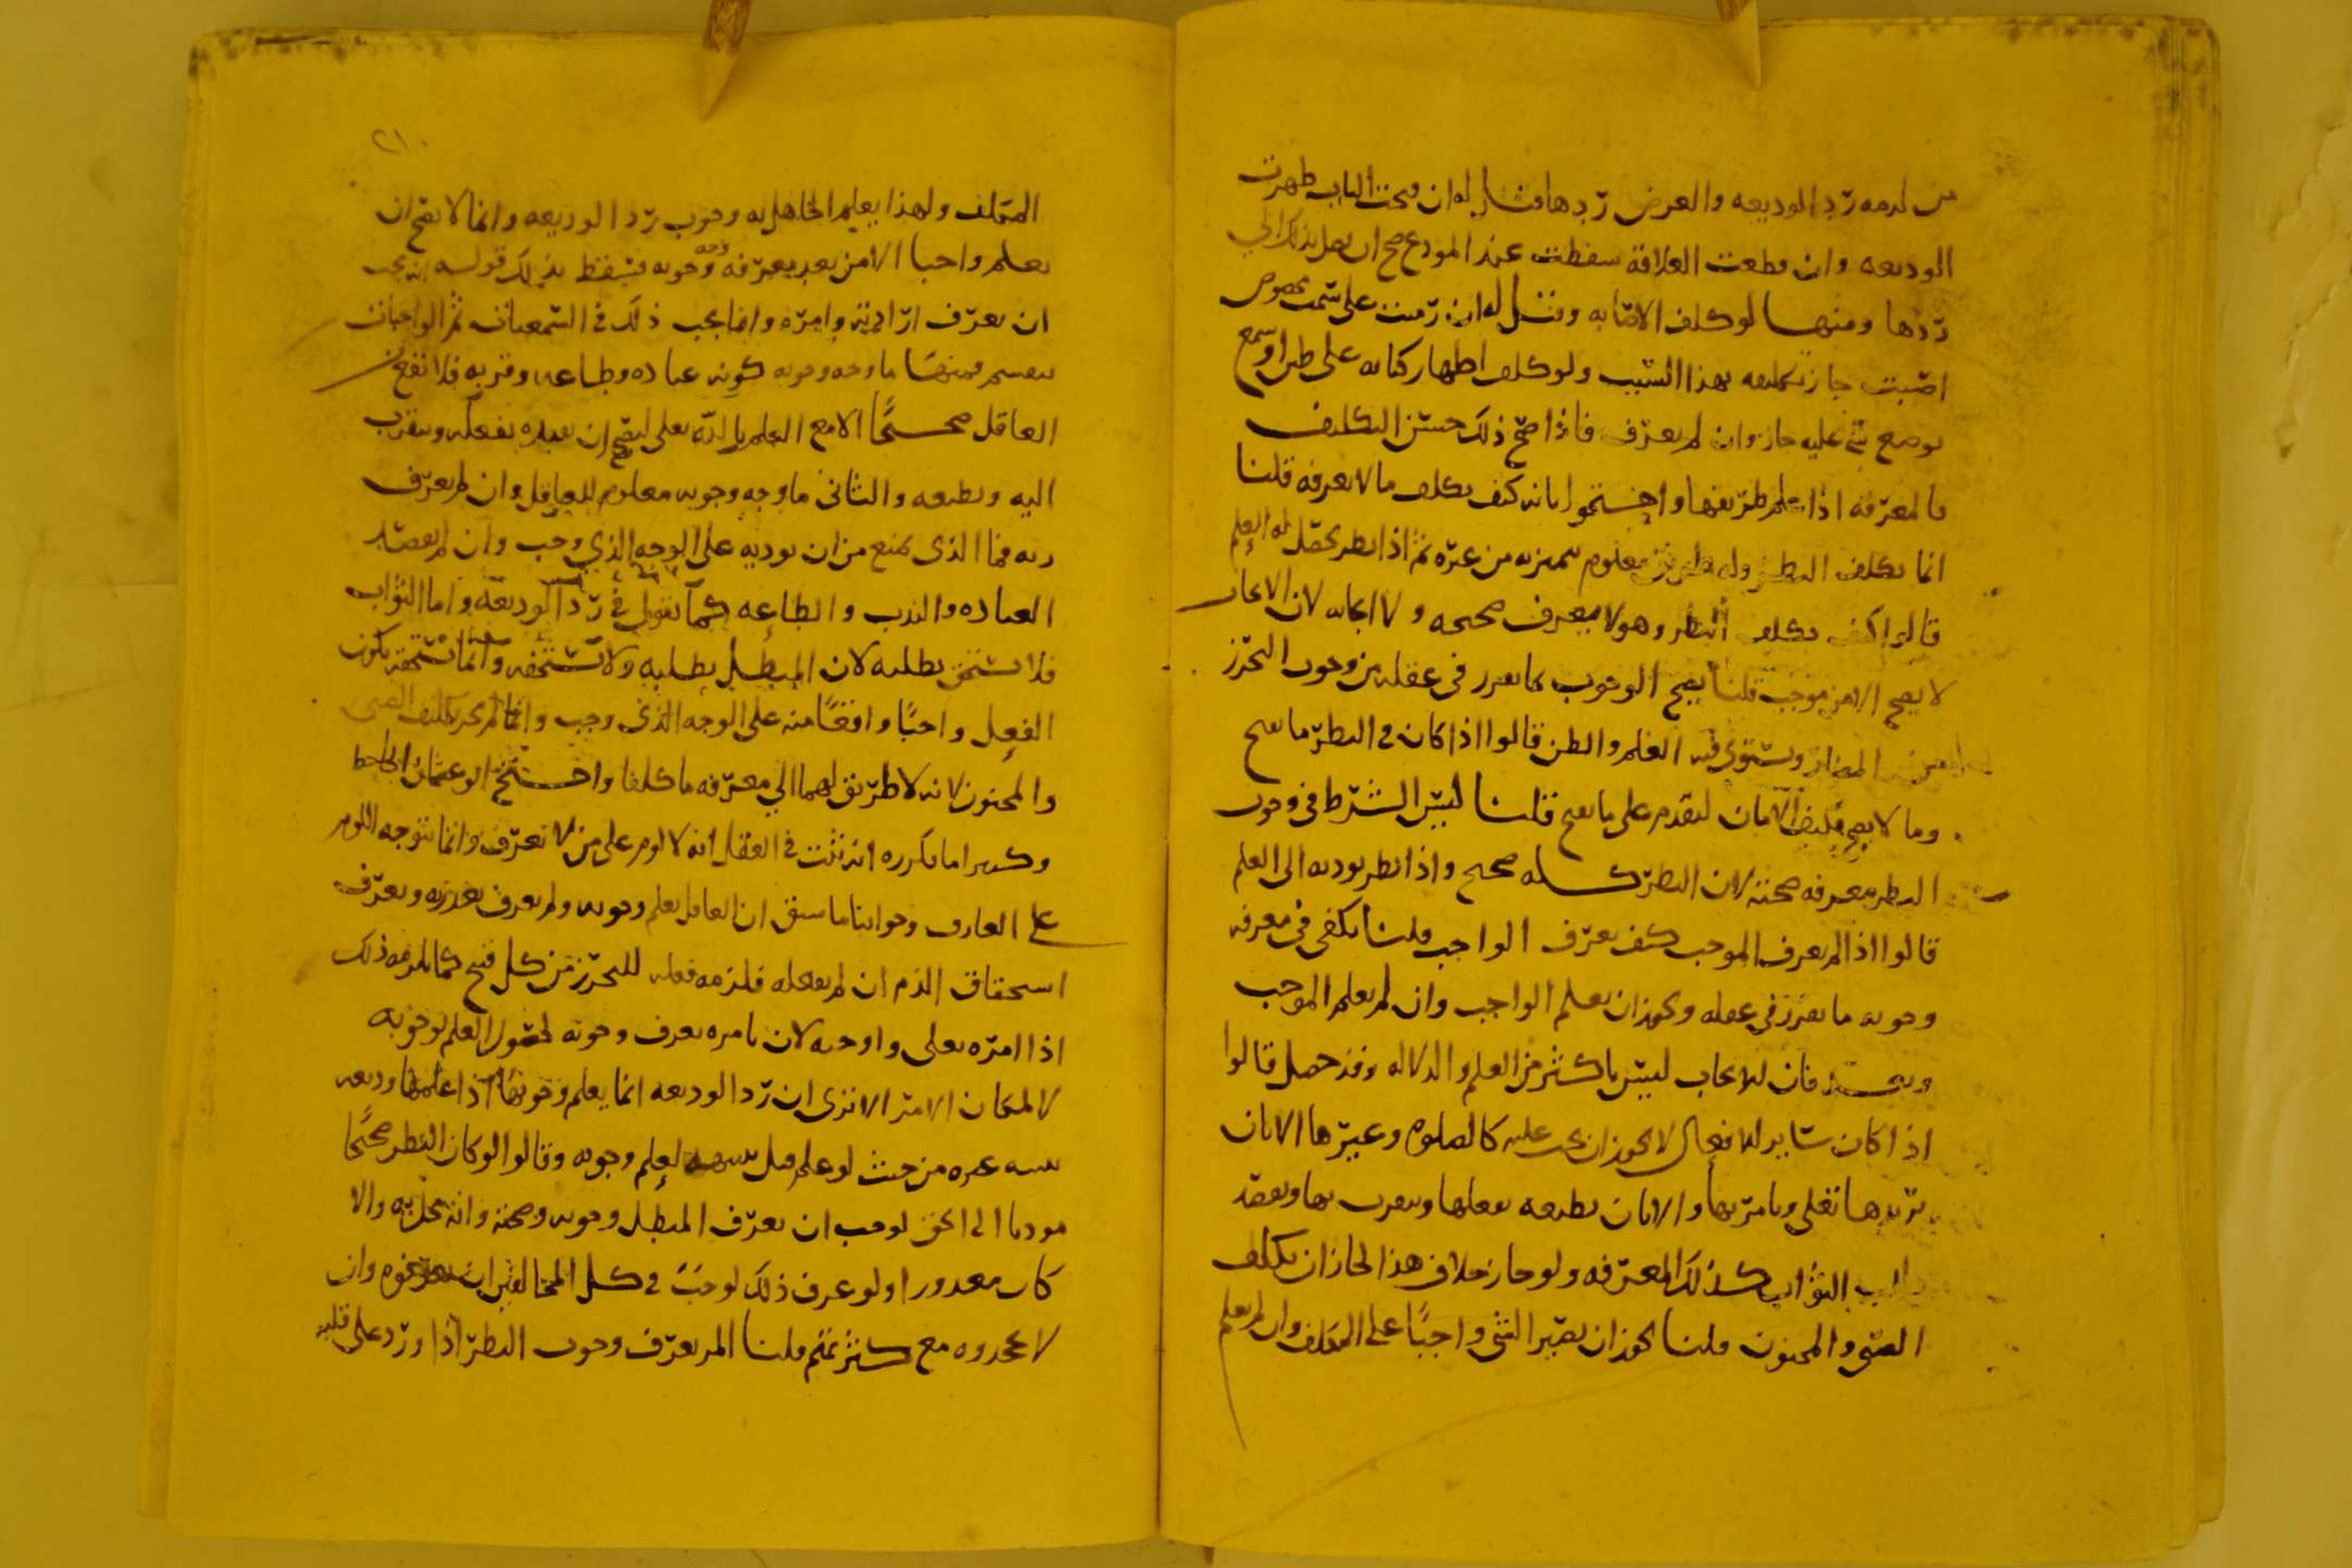 من لزمه رد الوديعه والغرض ردها فقيل له ان فتحت الباب ظهرت
الوديعه وان قطعت العلاقة سقطت عند المودع صح ان يصل بذلك الى
ردها ومنها لو كلف الاصابه وقيل له ان رميت على سمت مخصوص
اصبت جاز تكليفه بهذا السبب ولو كلف اظهار كتابه على طين او شمع
بوضع شي عليه جاز وان لم يعرف فاذا صح ذلك حسن التكليف
بالمعرفه اذا علم طريقها واحتجوا بانه كيف يكلف ما لا يعرفه قلنا
انما يكلف النظر وله طريق معلوم يميز به من غيره ثم اذا نظر يحصل له العلم
قالوا كيف يكلف النظر وهو لا يعرف صحته ولا ايجابه لان الايجاب
لا يصح الا من موجب قلنا يصح الوجوب بما تقرر في عقله من وجوب التحرز
المضار ويستوي فيه العلم والظن قالوا اذا كان في النظر ما يصح
وما لا يصح فكيف الامان ليقدم على ما يصح قلنا ليس الشرط في وجوب
النظر معرفه صحته لان النظر كله صحيح واذا نظر يوديه الى العلم
قالوا اذا لم يعرف الموجب كيف يعرف الواجب قلنا يكفي في معرفه
وجوبه ما تقرر في عقله ويجوز ان يعلم الواجب وان لم يعلم الموجب
وبعد فان الايجاب ليس باكثر من العلم والدلاله وقد حصل قالوا
اذا كان سائر الافعال لا يجوز ان يجب عليه كالصلوه وغيرها الا بان
يريدها تعلى ويامر بها والا بان يطيعه بفعلها ويتقرب بها ويقصد
طلب الثواب كذلك المعرفه ولو جاز خلاف هذا لجاز ان يكلف
الصبي والمجنون قلنا يجوز ان يصير الشي واجبا على المكلف وان لم يعلم
٢١٠
المكلف ولهذا يعلم الجاهل به وجوب رد الوديعه وانما لا يصح ان
يعلم واجبا الا من بعد معرفه وجه وجوبه فسقط بذلك قوله انه يجب
ان يعرف ارادته وامره وانما يجب ذلك في السمعيات ثم الواجبات
تنقسم فمنها ما وجه وجوبه كونه عباده وطاعه وقربه فلا تقع من
العاقل صحيحا الا مع العلم بالله تعلى ليصح ان يعبده بفعله ويتقرب
اليه ويطيعه والثاني ما وجه وجوبه معلوم للعاقل وان لم يعرف
ربه فما الذي يمنع من ان يوديه على الوجه الذي وجب وان لم يقصد
العباده والندب والطاعه كما نقول في رد الوديعه واما الثواب
فلا يستحق بطلبه لان المبطل يطلبه ولا يستحقه وانما يستحقه بكون
الفعل واجبا واقعا منه على الوجه الذي وجب وانما لم يجز تكليف الصبي
والمجنون لانه لا طريق لهما الى معرفه ما كلفا واحتج ابو عثمان الجاحظ
وكثيرا ما يكرره انه ثبت في العقل انه لا لوم على من لا يعرف وانما يتوجه اللوم
على العارف وجوابنا ما سبق ان العاقل يعلم وجوبه ولم يعرف بقدرته ويعرف
استحقاق الذم ان لم يفعله فلزمه فعله للتحرز من كل قبيح كما يلزمه ذلك
اذا امره تعلى واوجبه لان بامره يعرف وجوبه لحصول العلم بوجوبه
لا لمكان الامر الا ترى ان رد الوديعه انما يعلم وجوبها اذا علمها وديعه
غيره من حيث لو علم قبل لعلم وجوبه وقالوا لو كان النظر صحيحا
موديا الى الحق لوجب ان يعرف المبطل وجوبه وصحته وانه مخل به والا
كان معذورا ولو عرف ذلك لوجب في كل المخالفين ان يعرفوه وان
لا يجحدوه مع كثرتهم قلنا المر يعرف وجوب النظر اذا ورد على قلبه